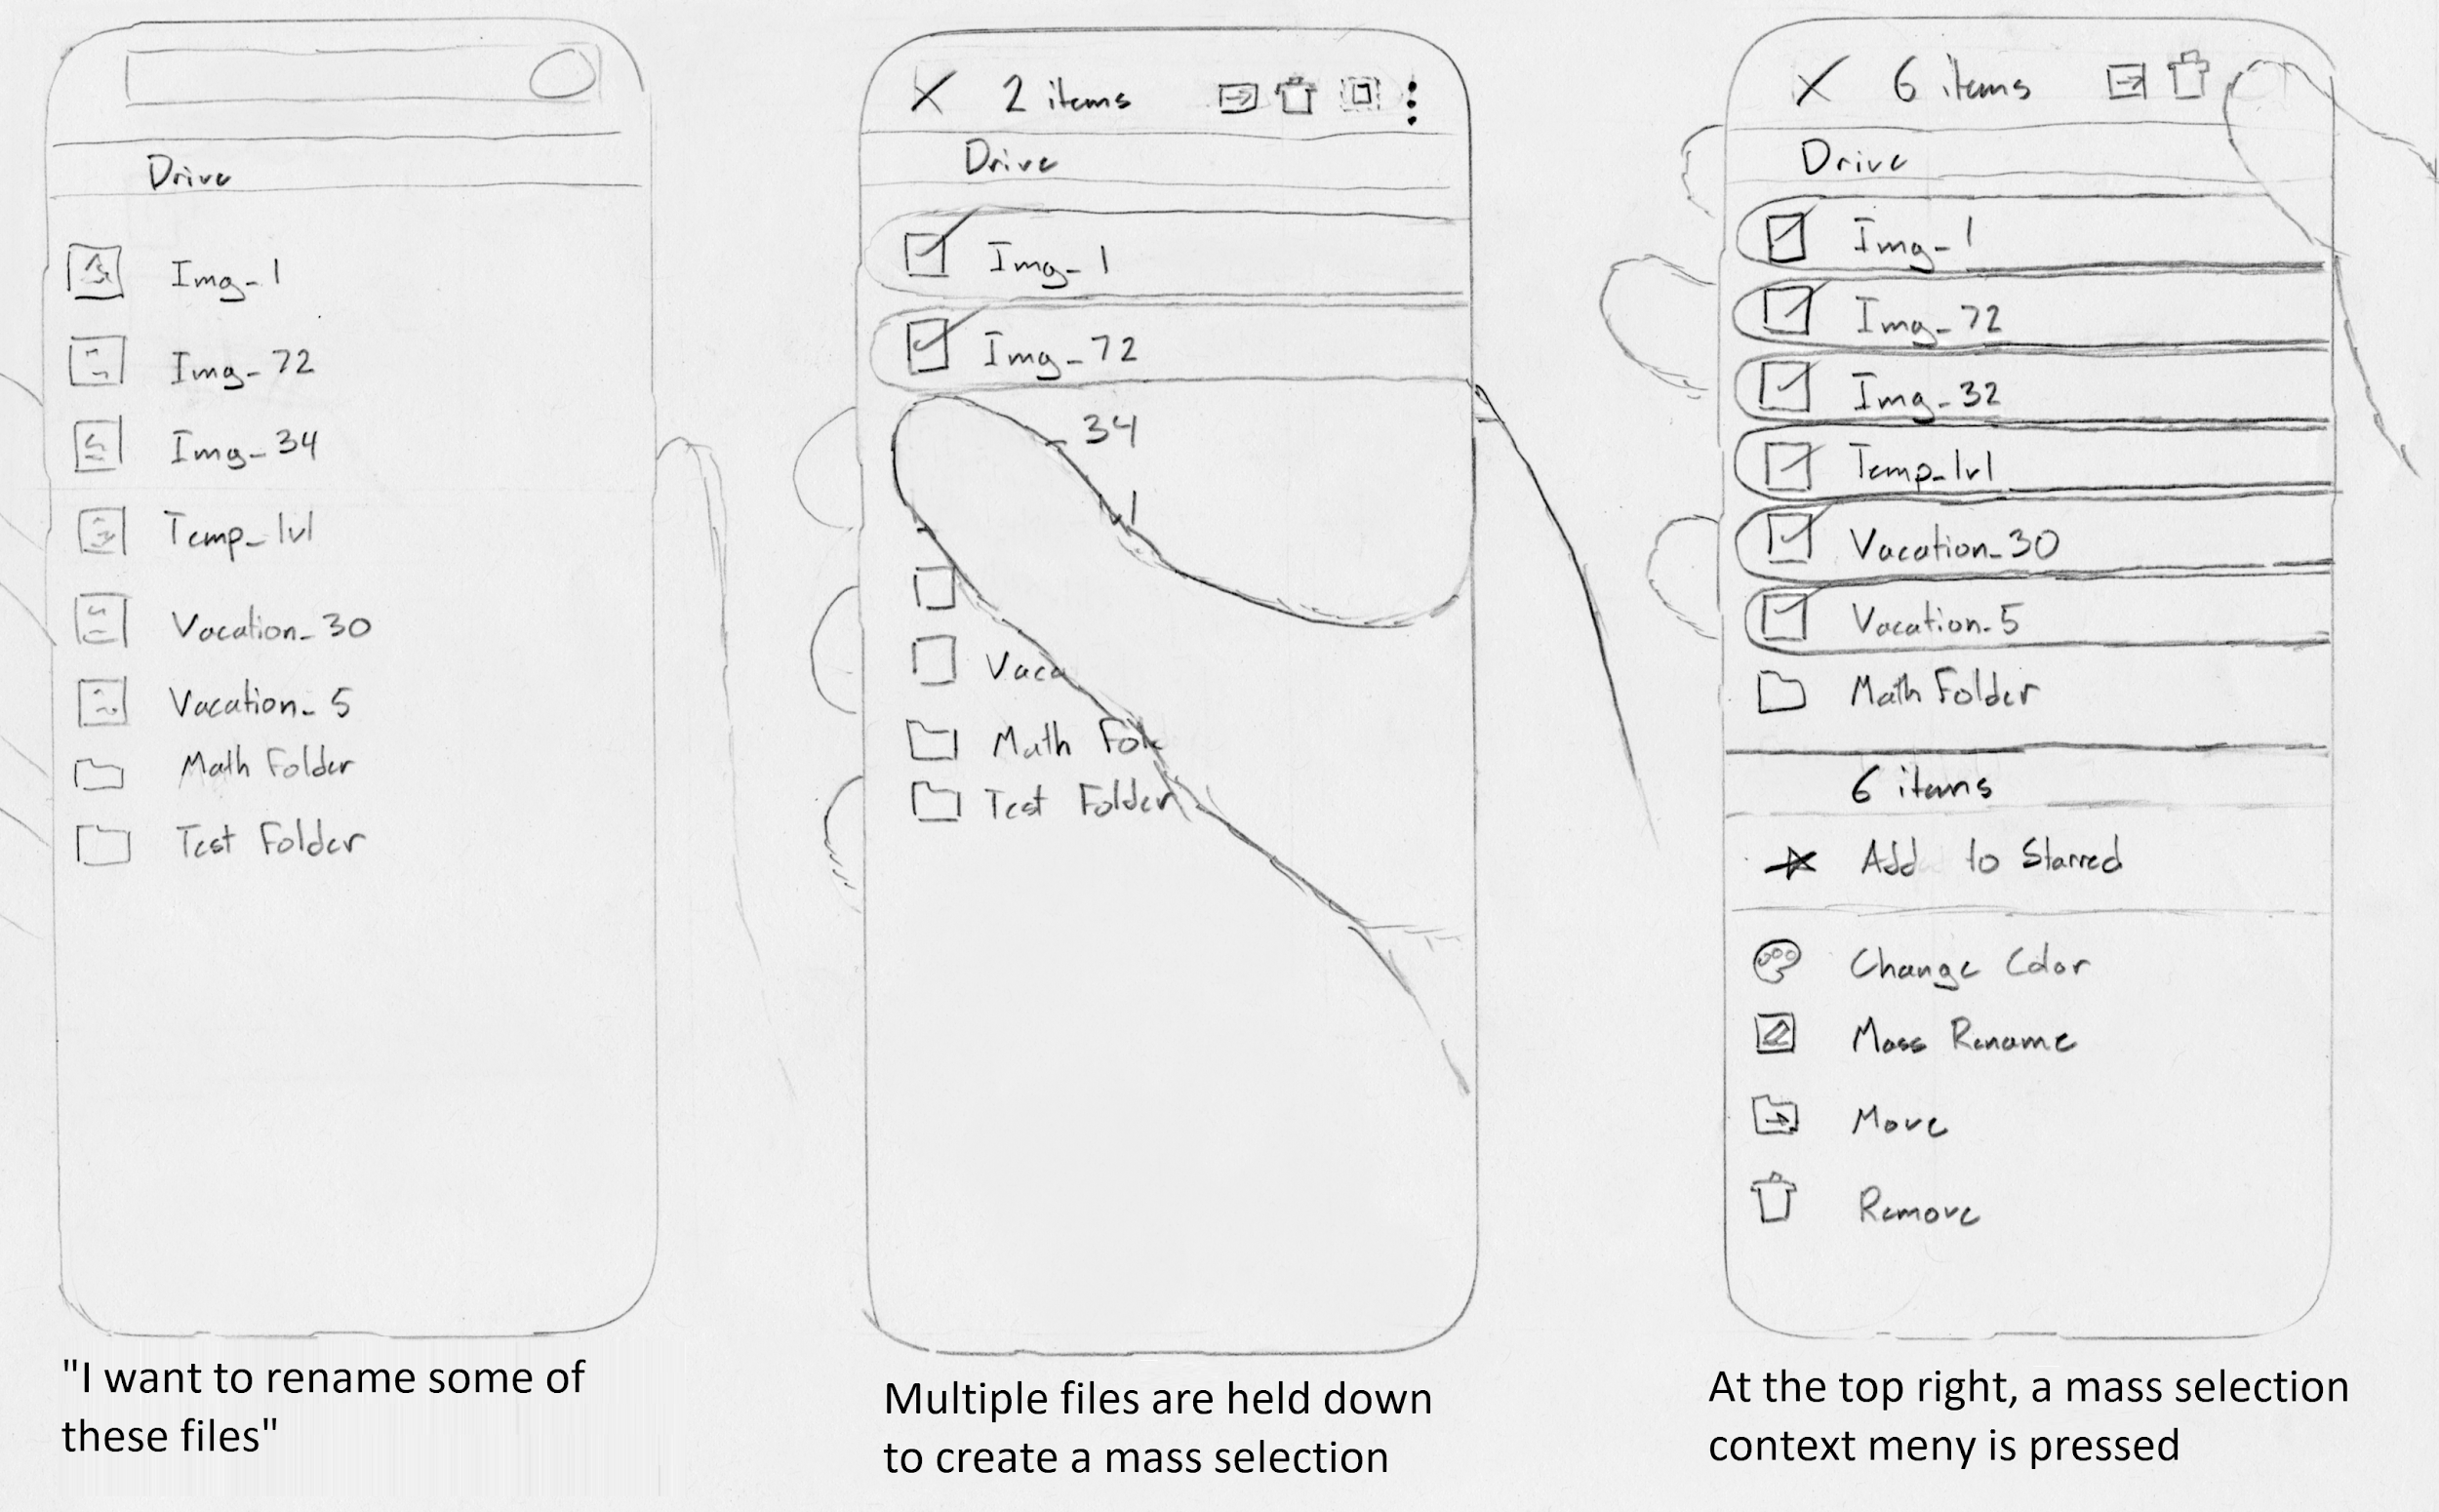 Drive
Img_1
Img_72
Img_34
Temp_lvl
Vacation_30
Vacation_5
Math Folder
Test Folder
"I want to rename some of
these files"
2 items
Drive
Img_1
Img_72
_34
lvl
Vaca
Math Fol
Test Folder
Multiple files are held down
to create a mass selection
6 items
Drive
Img_1
Img_72
Img_32
Temp_lvl
Vacation_30
Vacation_5
Math Folder
6 items
Add to Starred
Change Color
Mass Rename
Move
Remove
At the top right, a mass selection
context meny is pressed